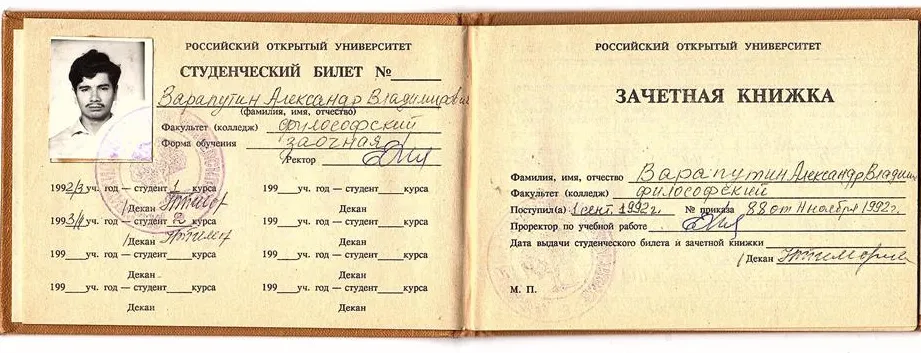 РОССИЙСКИЙ ОТКРЫТЫЙ УНИВЕРСИТЕТ
СТУДЕНЧЕСКИЙ БИЛЕТ №
Варапутин Александр Владимирович
(фамилия, имя, отчество)
Факультет (колледж) философский
Форма обучения заочная
Ректор
1992/3 уч. год — студент 1 курса
Декан
1993/4 уч. год — студент 2 курса
Декан
199 уч. год — студент курса
Декан
199 уч. год — студент курса
Декан
199 уч. год — студент курса
Декан
199 уч. год — студент курса
Декан
199 уч. год — студент курса
Декан
199 уч. год — студент курса
Декан
РОССИЙСКИЙ ОТКРЫТЫЙ УНИВЕРСИТЕТ
ЗАЧЕТНАЯ КНИЖКА
Фамилия, имя, отчество Варапутин Александр Владим
Факультет (колледж) философский
Поступил(а) 1 сент. 1992 г. № приказа 88 от 11 ноября 1992 г.
Проректор по учебной работе
Дата выдачи студенческого билета и зачетной книжки
Декан
М. П.